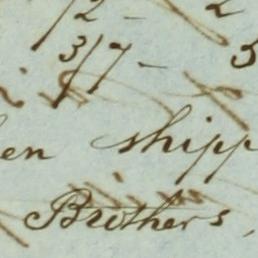 /2 -
3/7 -
en shipp
Brothers,